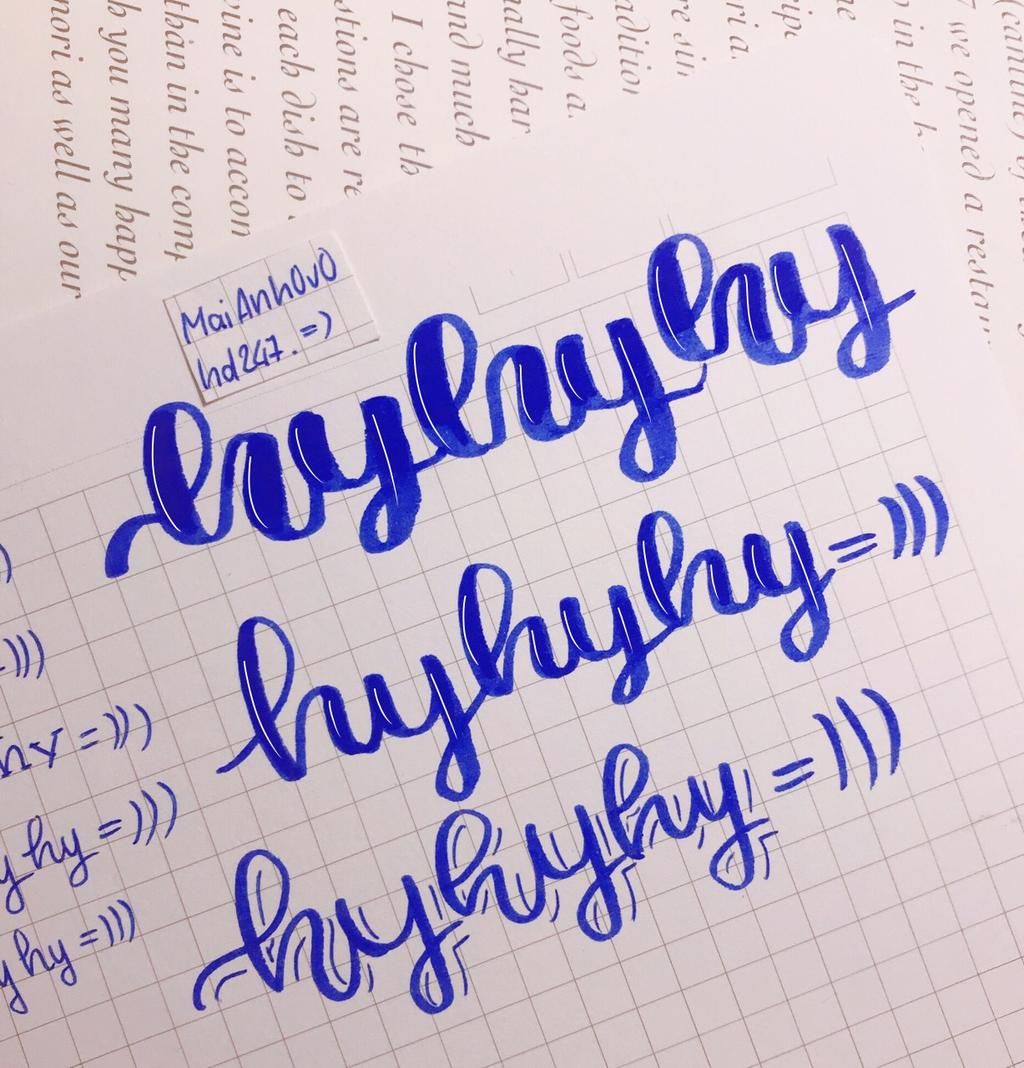 (canine) by
7 we opened a restau
in the
me
rip
ri a
re sin
addition
foods a
nally har
and much
I chose th
stions are re
each dish to
wine is to accom
than in the comp
h you many happ
nori as well as our
MaiAnhOvO
hd247. =)
hyhyhy
hyhyhy =)))
hyhyhy =)))
=)))
hy =)))
y hy =)))
y hy =)))